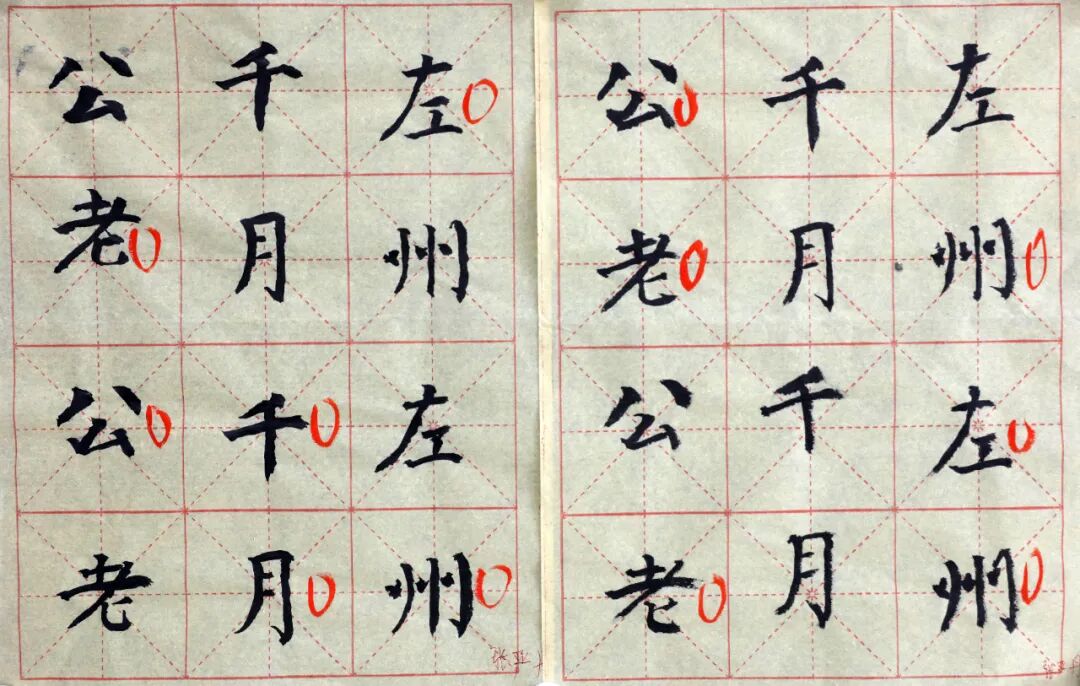 公千左
老月州
公千左
老月州
张亚
公千左
老月州
公千左
老月州
张亚